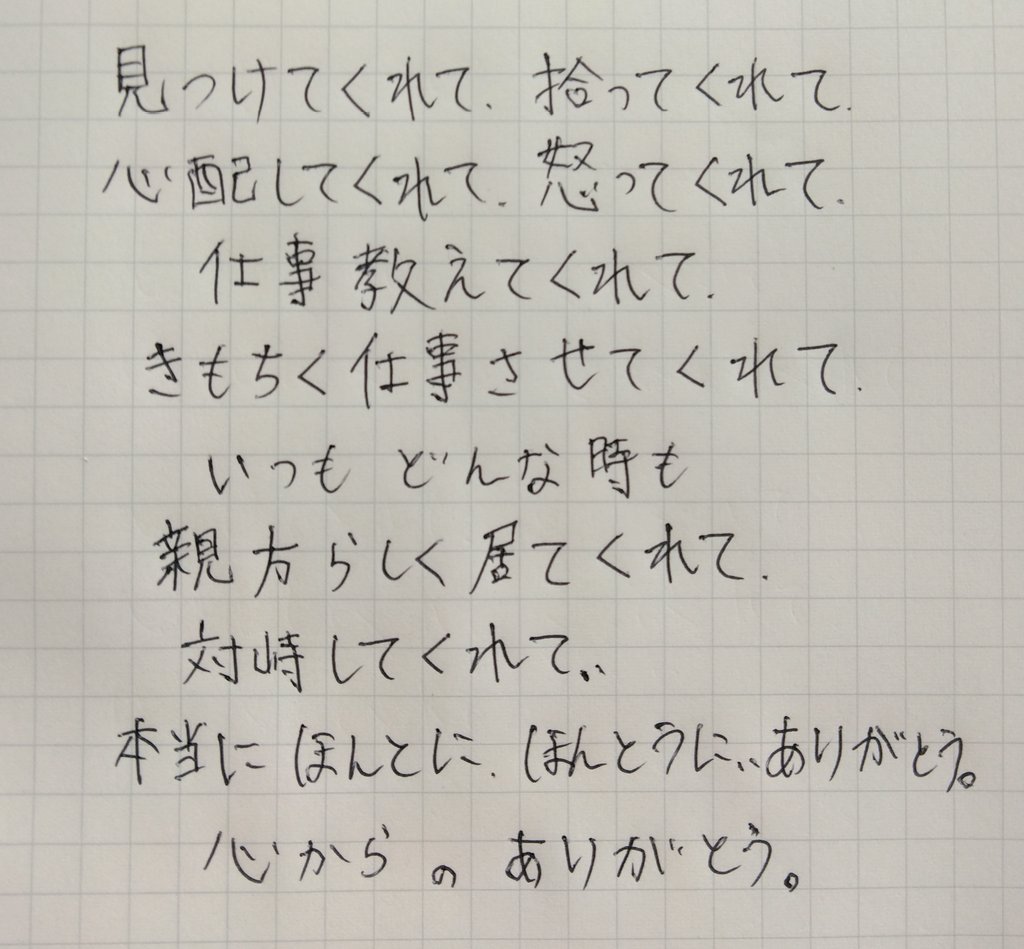 見つけてくれて. 拾ってくれて.
心配してくれて. 怒ってくれて.
仕事教えてくれて.
きもちく仕事させてくれて.
いつも どんな時も
親方らしく居てくれて.
対峙してくれて..
本当に ほんとに. ほんとうに..ありがとう。
心からの ありがとう。